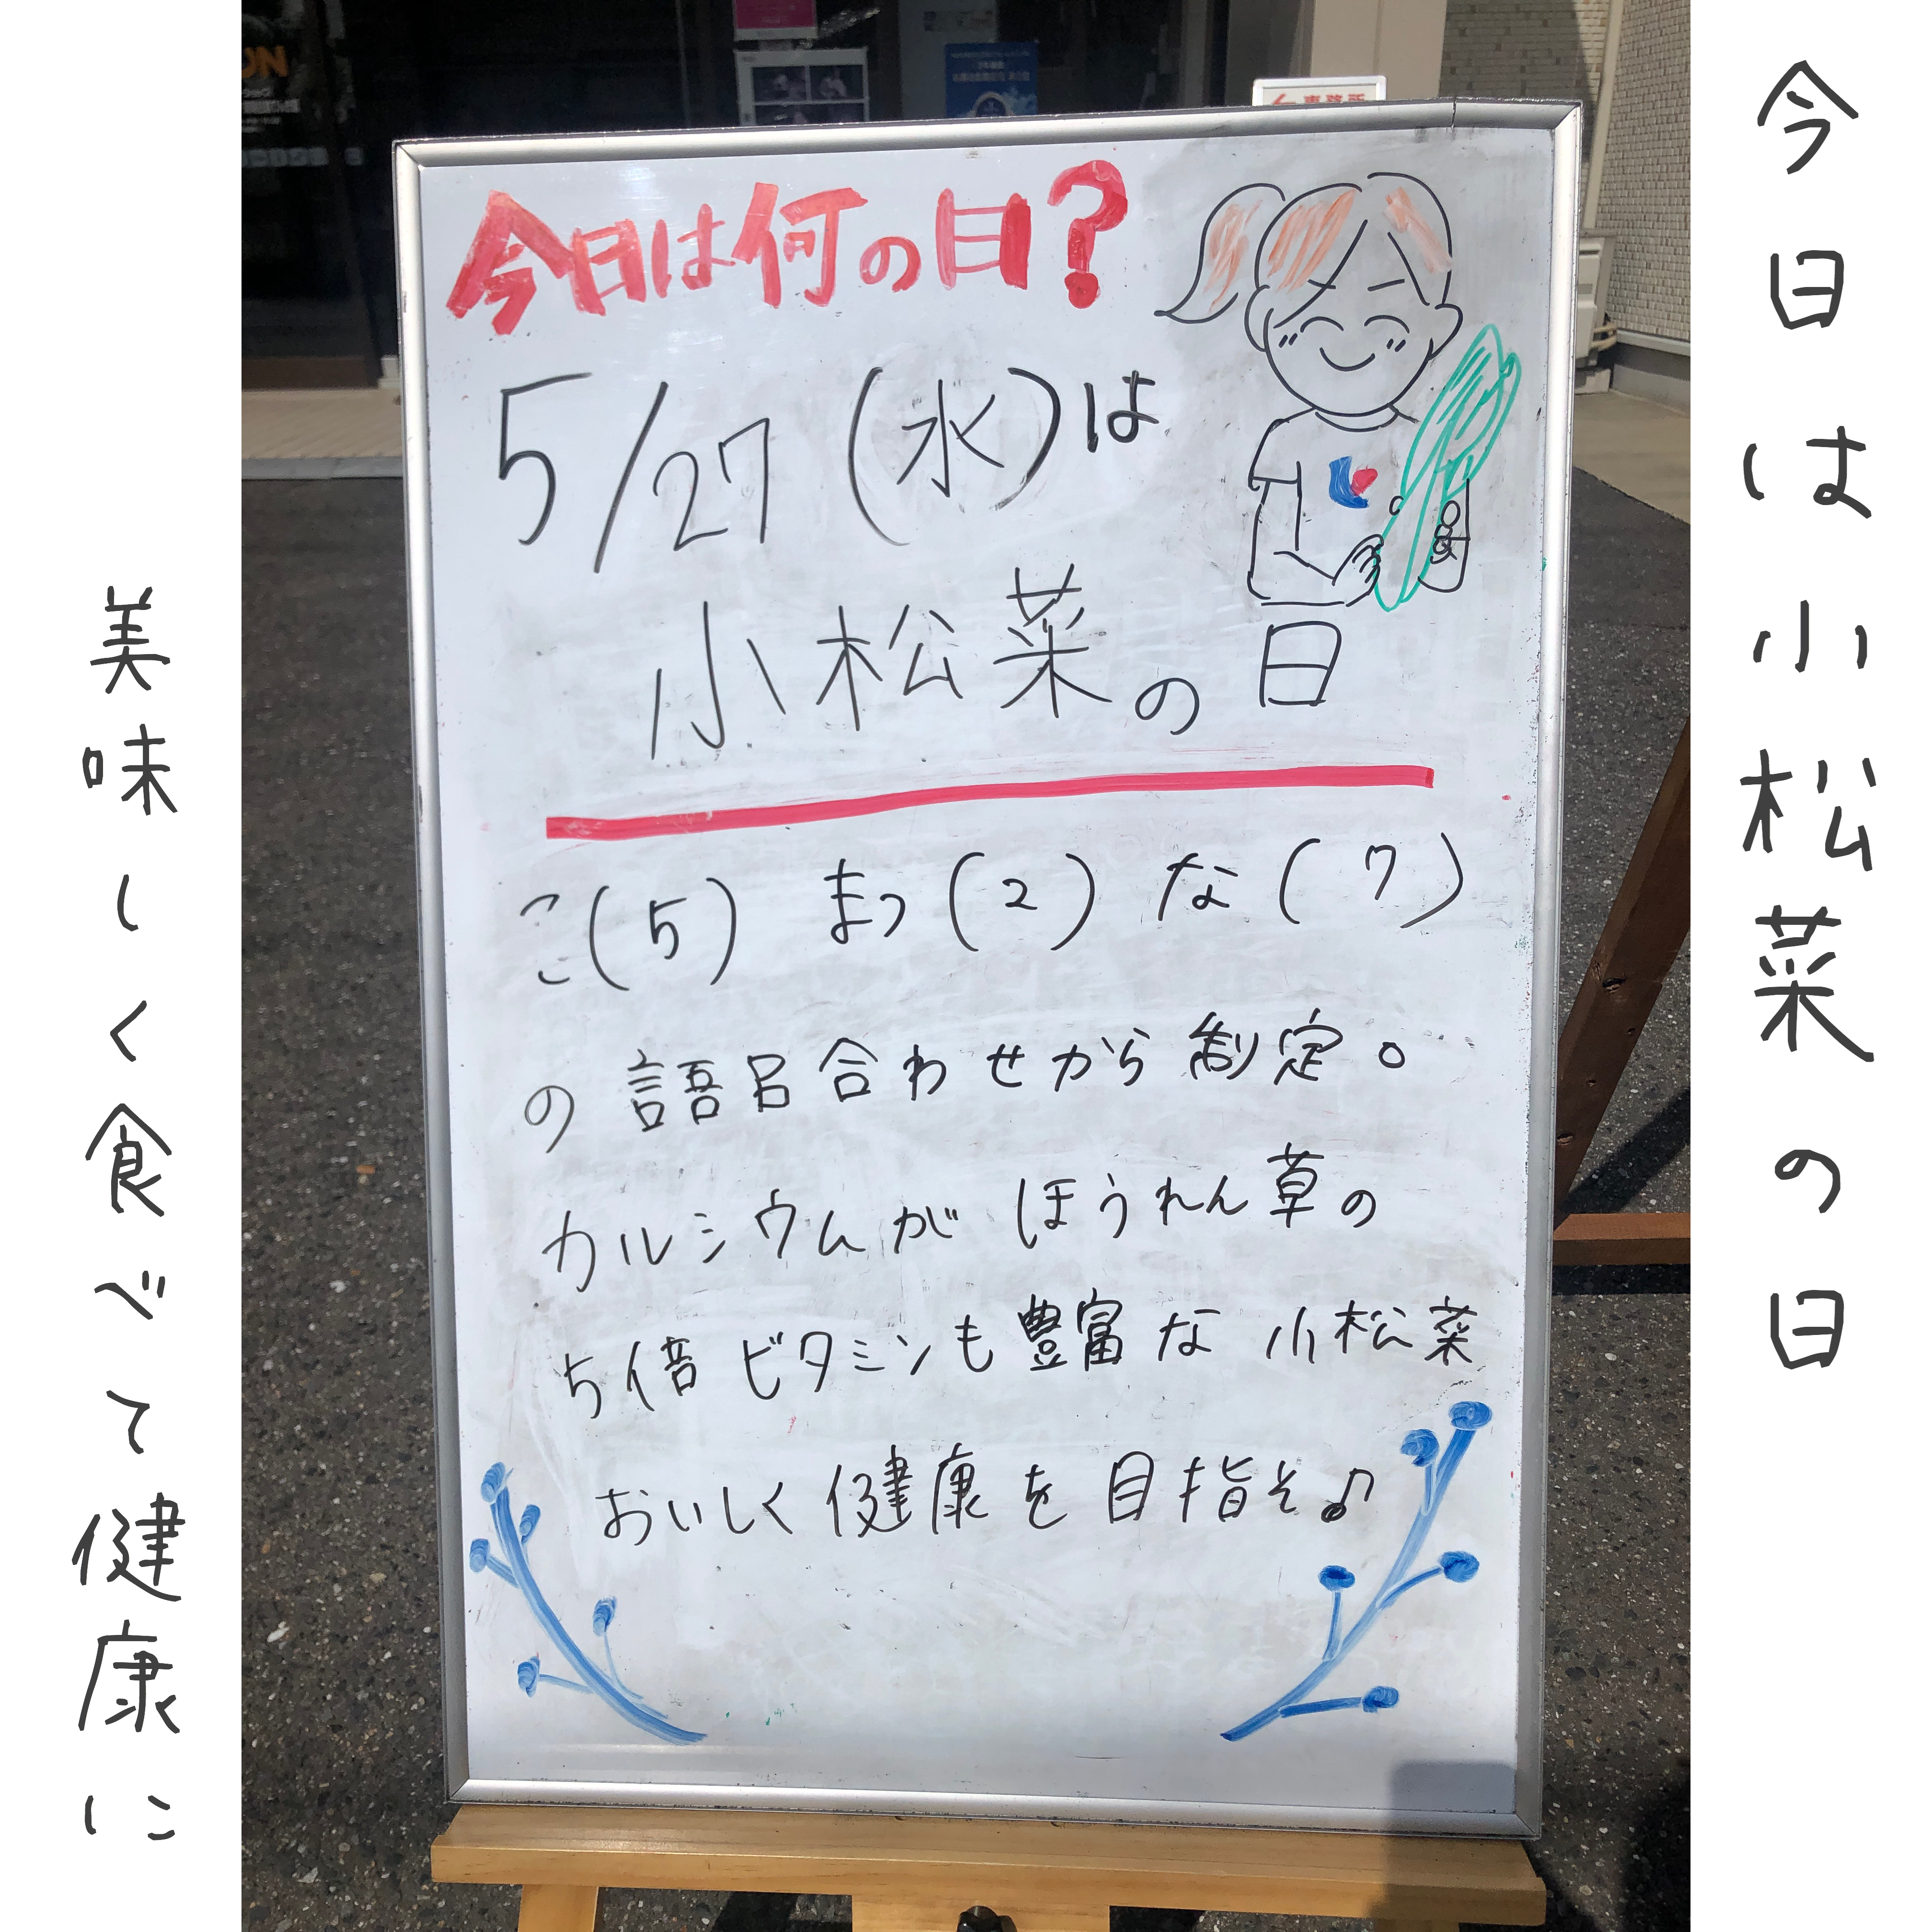 今日は小松菜の日
今日は何の日?
5/27(水)は
小松菜の日
こ(5) まつ(2) な(7)
の語呂合わせから制定。
カルシウムがほうれん草の
5倍ビタミンも豊富な小松菜
おいしく健康を目指そ♪
美味しく食べて健康に